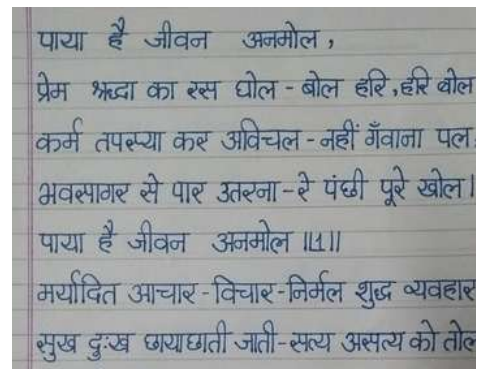 पाया है जीवन अनमोल,
प्रेम श्रद्धा का रस घोल - बोल हरि, हरि बोल
कर्म तपस्या कर अविचल - नहीं गँवाना पल
भवसागर से पार उतरना - रे पंछी पूरे खोल।
पाया है जीवन अनमोल ॥1॥
मर्यादित आचार - विचार - निर्मल शुद्ध व्यवहार
सुख दुःख छायाछाती जाती - सत्य असत्य को तोल